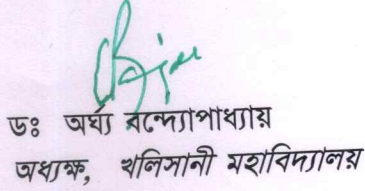 ডঃ অর্ঘ্য বন্দ্যোপাধ্যায়
অধ্যক্ষ, খলিসানী মহাবিদ্যালয়